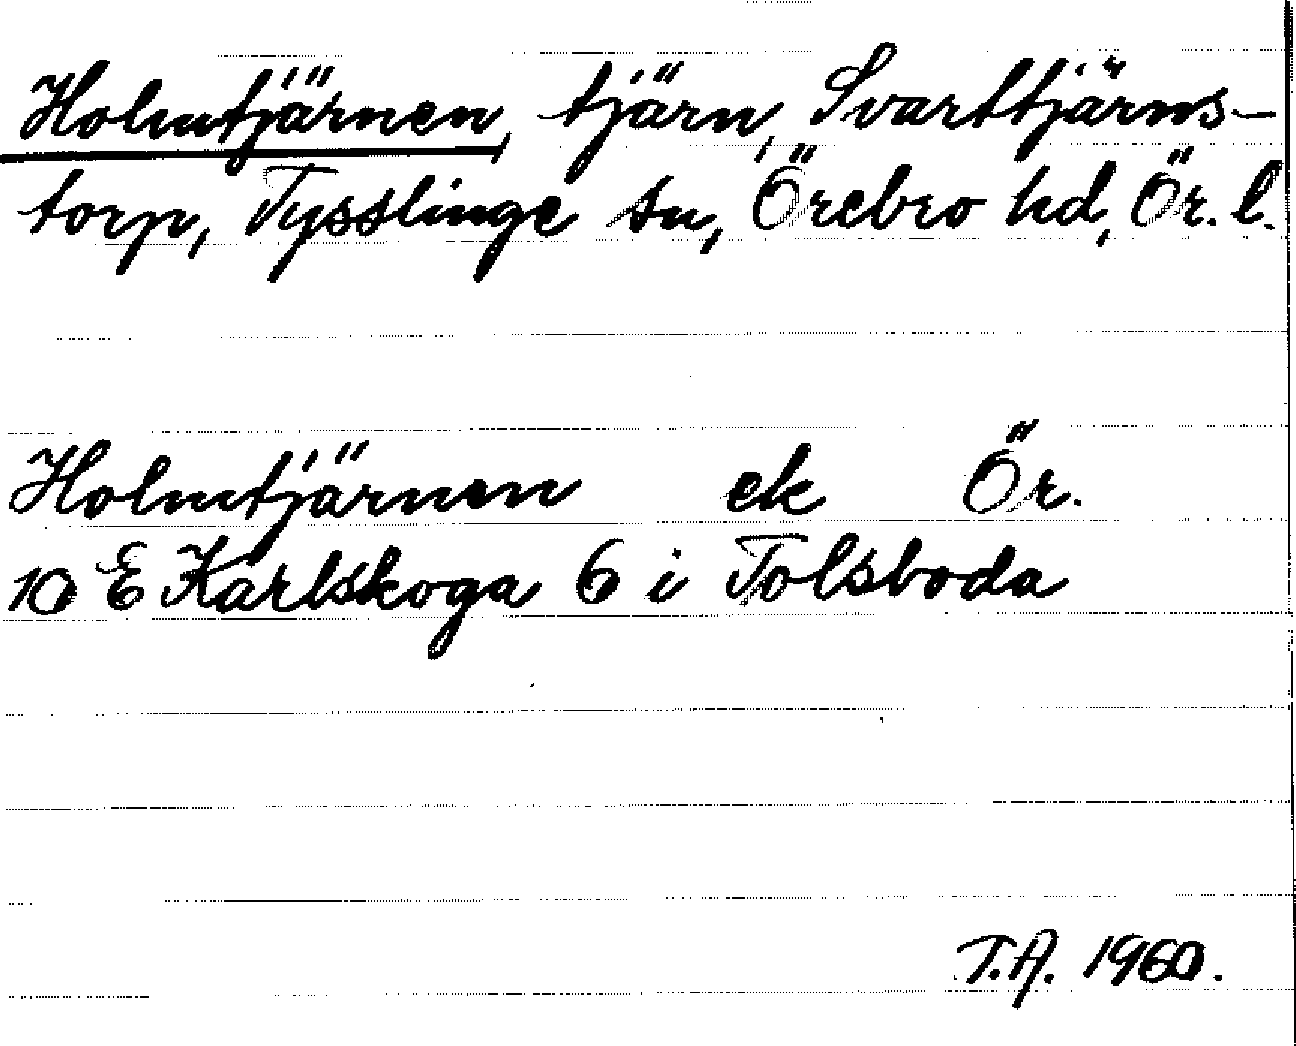 Holmtjärnen, tjärn, Svarttjärns-
torp, Tysslinge sn, Örebro hd, Ör. l.
Holmtjärnen ek Ör.
10 E Karlskoga 6 i Tolsboda
T.A. 1960.